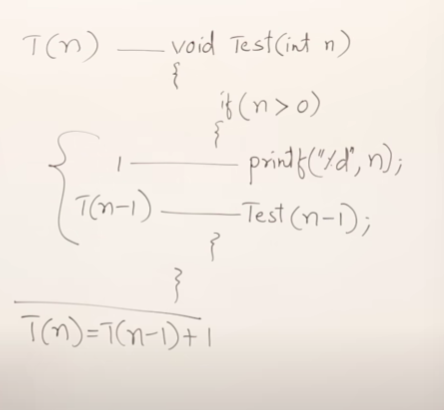 T(n) — void Test(int n)
{
if(n>0)
{
1 — printf("%d", n);
T(n-1) — Test(n-1);
}
}
T(n)=T(n-1)+1